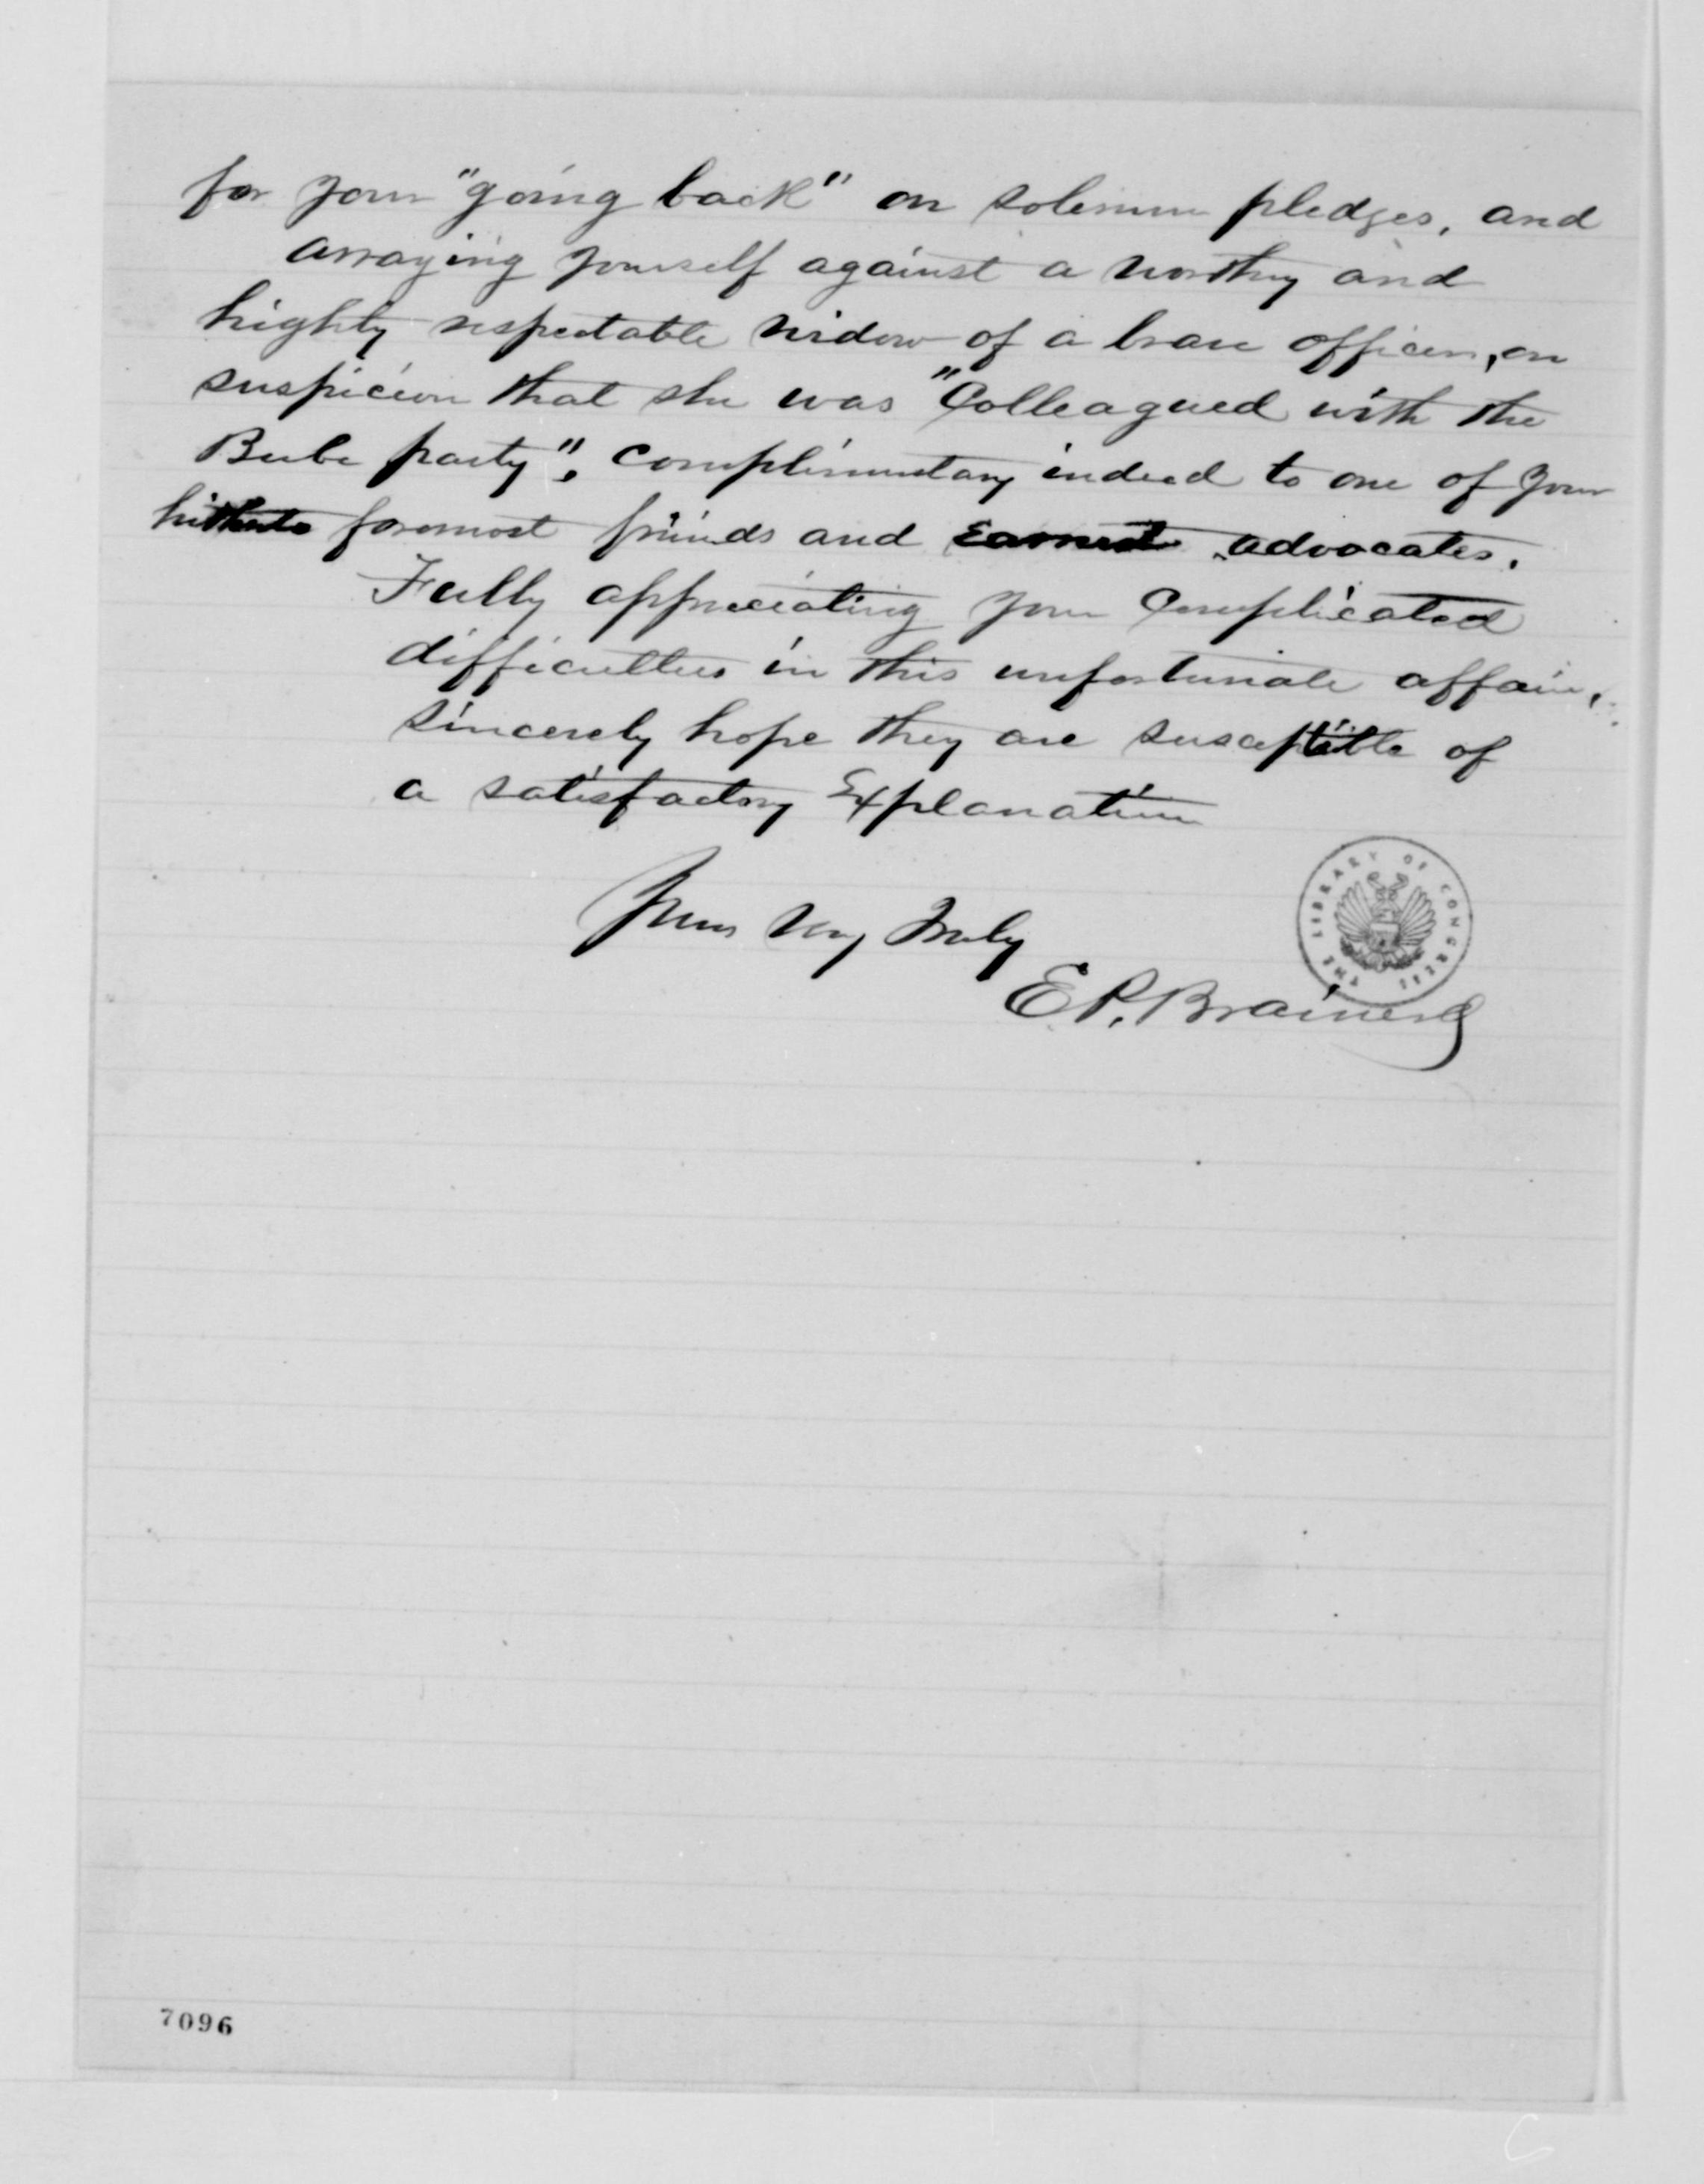 for your "going back" on solemn pledges, and
arraying yourself against a worthy and
highly respectable widow of a brave officer, on
suspicion that she was "Colleagued with the
Beebe party". Complimentary indeed to one of your
hitherto foremost friends and Earnest advocates.
Fully appreciating your Complicated
difficulties in this unfortunate affair,
sincerely hope they are susceptible of
a satisfactory Explanation
Yours Very Truly
E P. Brainerd
THE LIBRARY OF CONGRESS
7096